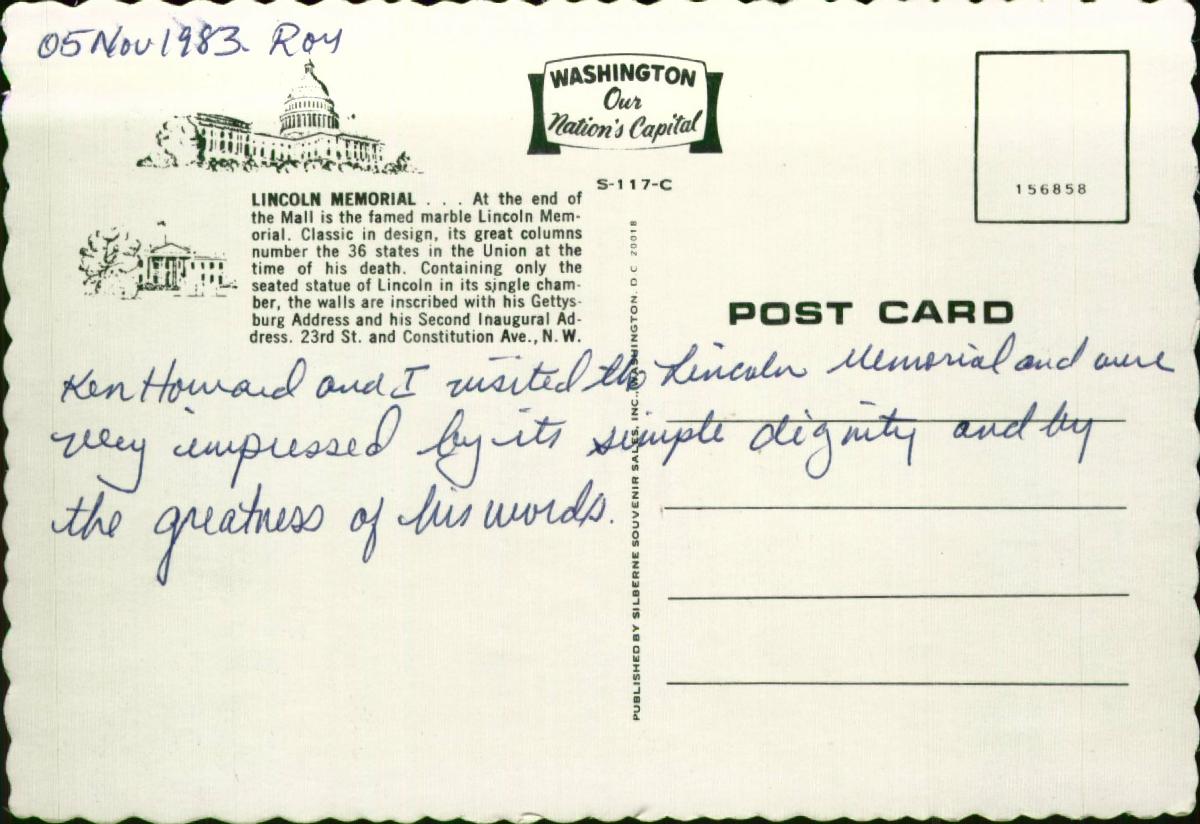 05 Nov 1983. Roy
WASHINGTON
Our
Nation's Capital
S-117-C
156858
LINCOLN MEMORIAL . . . At the end of
the Mall is the famed marble Lincoln Mem-
orial. Classic in design, its great columns
number the 36 states in the Union at the
time of his death. Containing only the
seated statue of Lincoln in its single cham-
ber, the walls are inscribed with his Gettys-
burg Address and his Second Inaugural Ad-
dress. 23rd St. and Constitution Ave., N.W.
POST CARD
PUBLISHED BY SILBERNE SOUVENIR SALES, INC., WASHINGTON, D.C. 20018
Ken Howard and I visited the Lincoln Memorial and were
very impressed by its simple dignity and by
the greatness of his words.